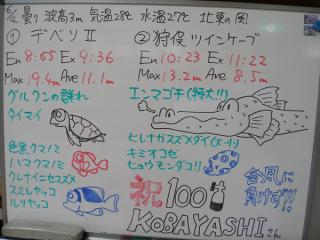 6/ 曇り 波高3m 気温28℃ 水温27℃ 北東の風
① デベソⅡ
En 8:55 Ex 9:36
Max 19.4m Ave 11.1m
グルクンの群れ
タイマイ
色黒クマノミ
ハマクマノミ
クレナイニセスズメ
スミレヤッコ
ルリヤッコ
② 狩俣ツインケーブ
En 10:23 Ex 11:22
Max 13.2m Ave 8.5m
エンマゴチ(特大!!)
ヒレナガスズメダイ(メイ)
キミオコゼ
ヒョウモンダコ!!
台風に
負けず!!
祝100本
KOBAYASHIさん